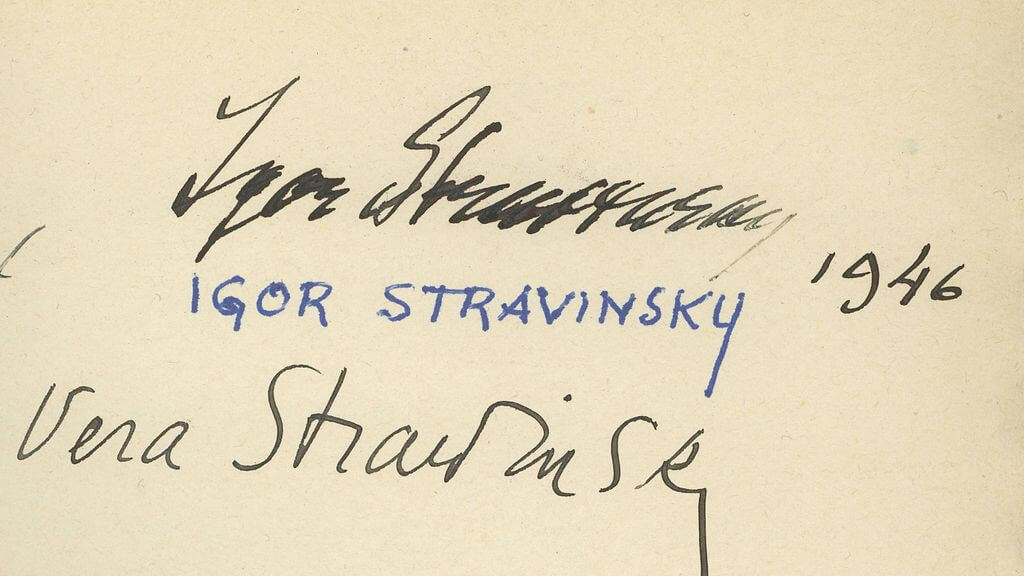 Igor Stravinsky
1946
IGOR STRAVINSKY
Vera Stravinsky